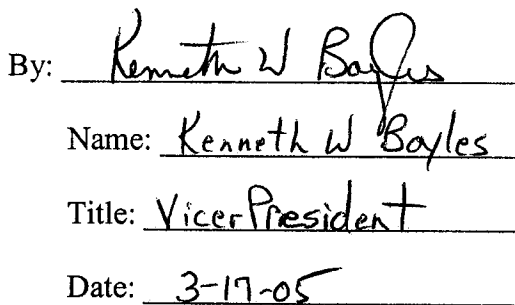 By: Kenneth W Boyles
Name: Kenneth W Boyles
Title: Vice President
Date: 3-17-05